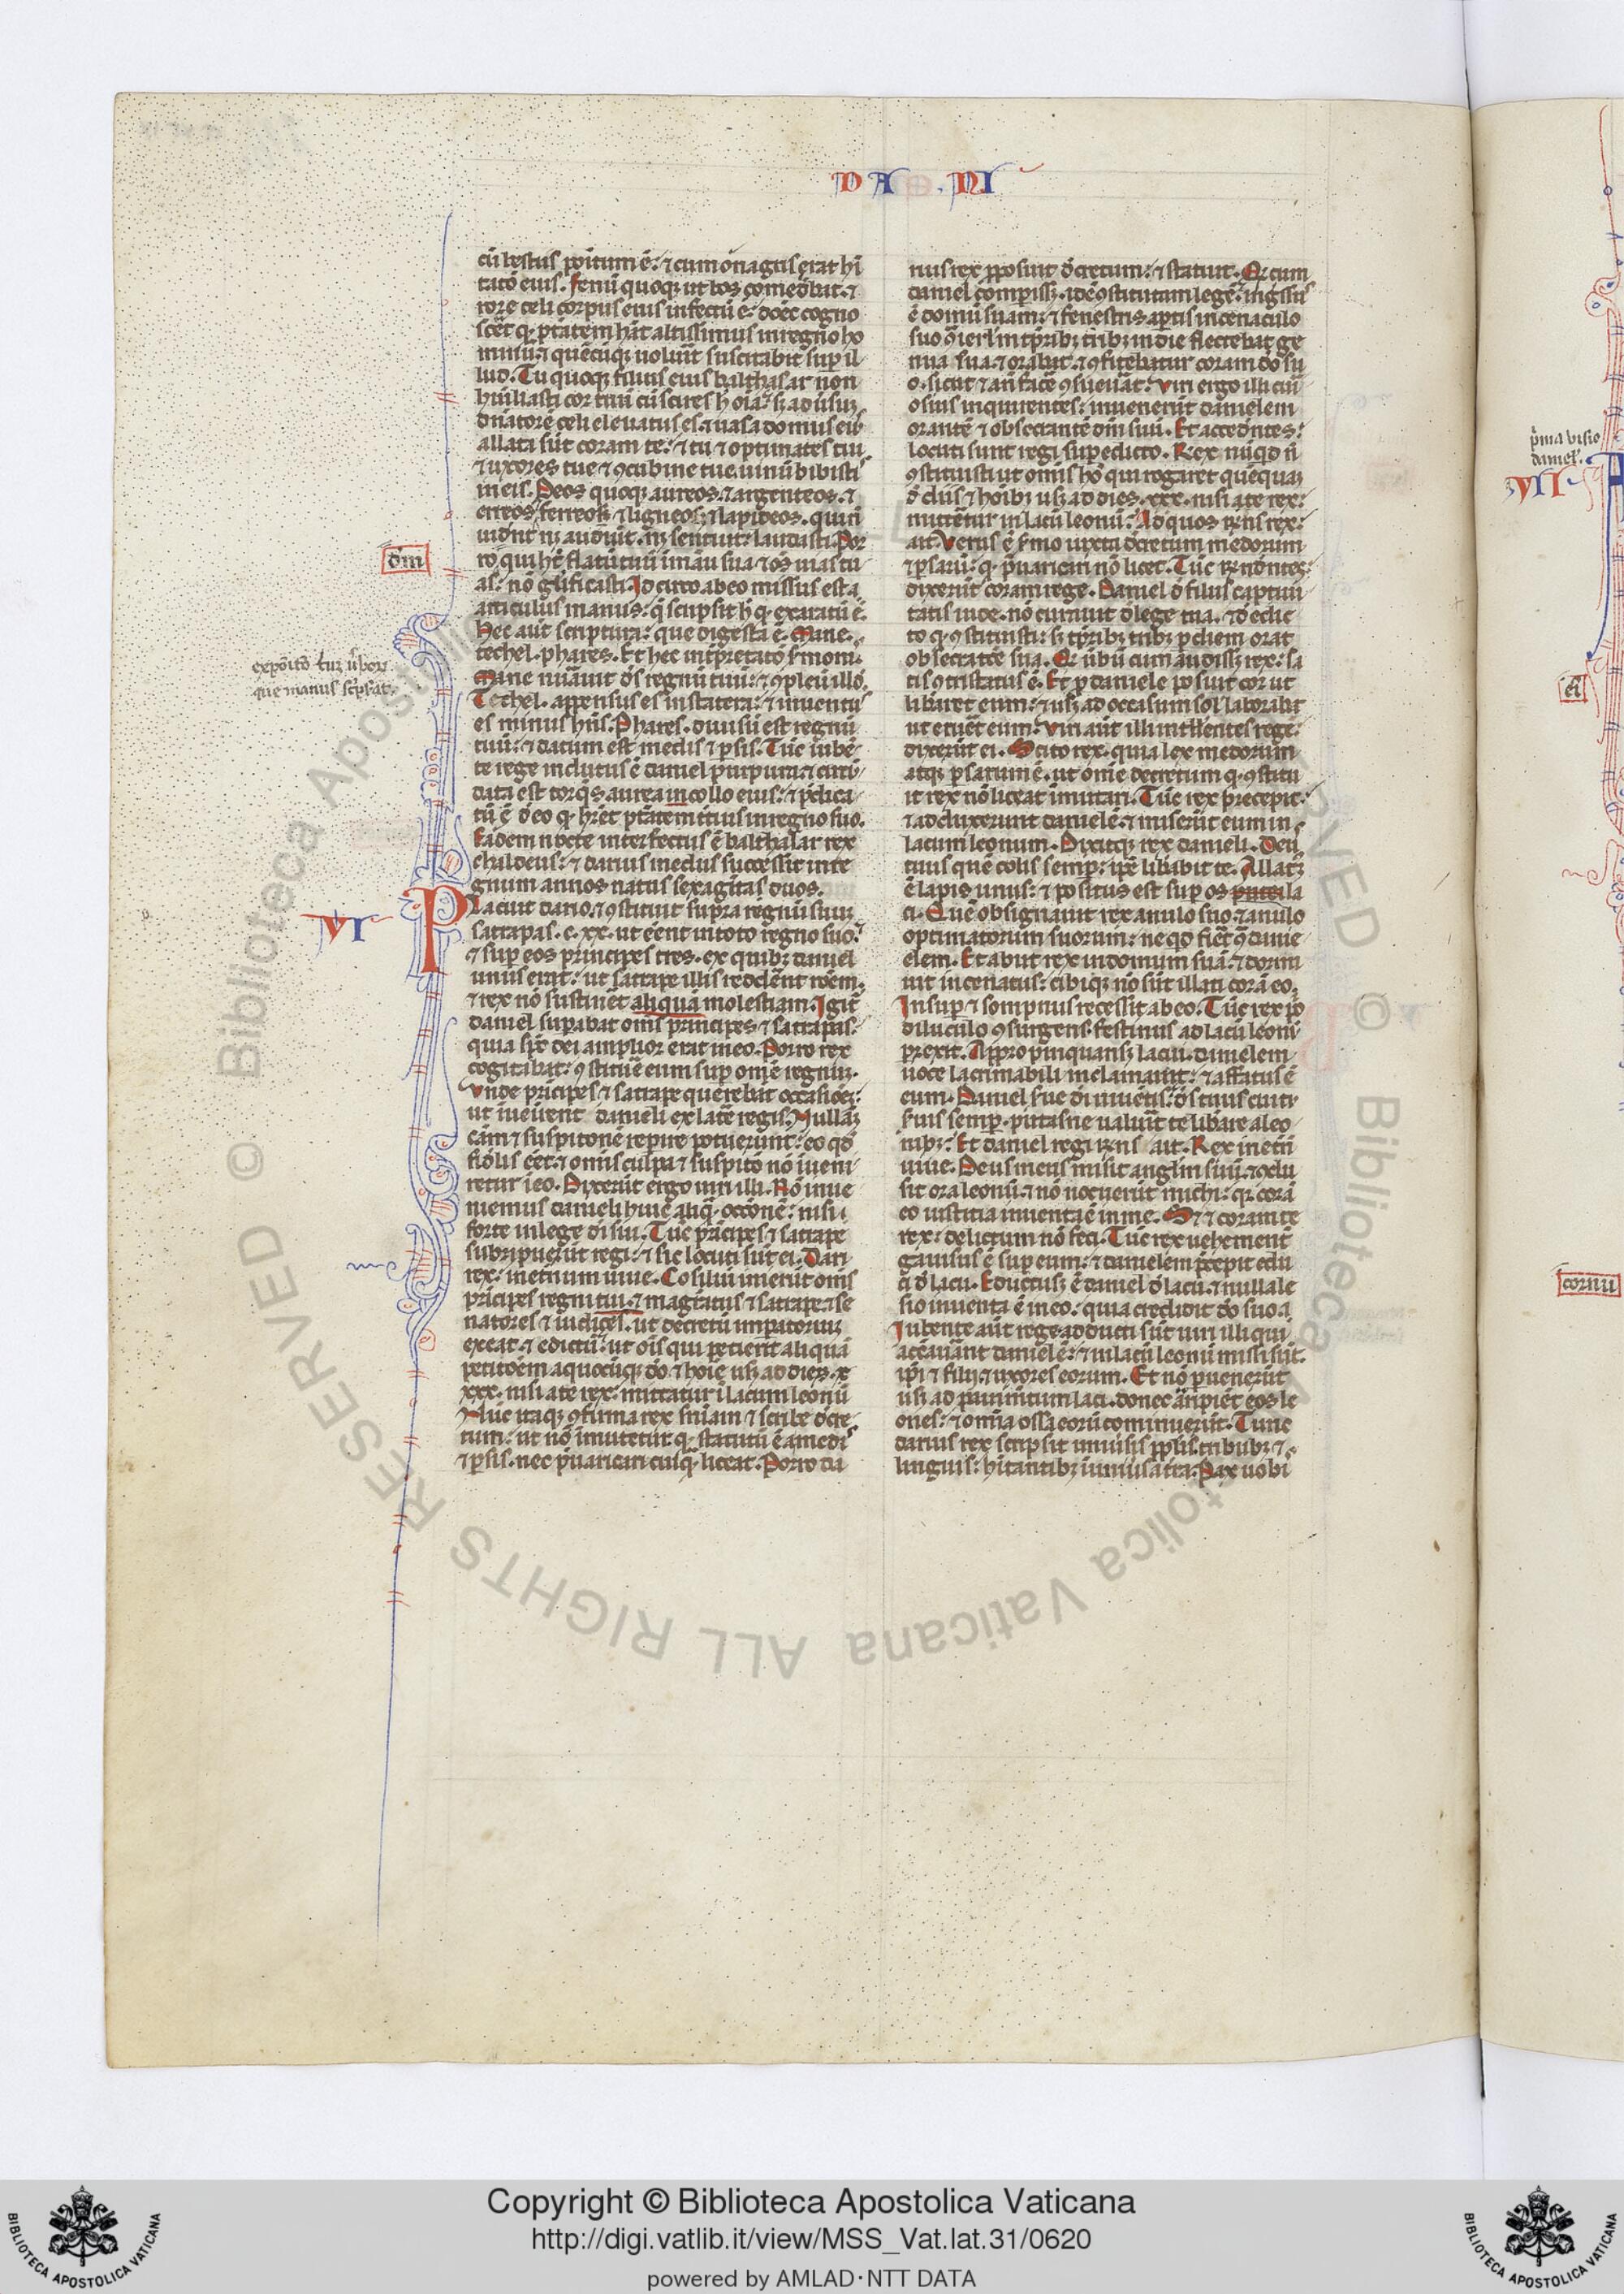 DA NI
cū bestiis positum ē: ⁊ cum onagris erat hi
tatō eius. Fenū quoqꝫ ut bos comedebat. ⁊
rore celi corpus eius infectū ē: donec cogno
scēt ꝙ ptātem hāt altissimus in regno ho
minū ⁊ quēcūqꝫ uoluīt suscitabit sup il
lud. Tu quoqꝫ filius eius balthasar non
hūiliasti cor tuū cū scires h̄ oīa: sꝫ adūsuꝫ
dn̄atorē celi eleuatus es. ⁊ uasa domus eiꝰ
allata sūt coram te: ⁊ tu ⁊ optimates tui
⁊ uxores tue ⁊ ꝯcubine tue uinū bibistis
in eis. Deos quoqꝫ aureos. ⁊ argenteos. ⁊
ereos ferreos ⁊ ligneos ⁊ lapideos. qui n̄
uidēt nꝫ audiūt. nꝫ sentiūt: laudasti. Por
ro qui hꝫ flatū tuū ī manu sua ⁊ oēs uias tu
dm̄
as: nō glīficasti. Idcirco ab eo missus est
articulus manus: q̄ scripsit h̄ ꝙ exaratū ē.
Hec aūt scriptura: que digesta ē. Mane.
techel. phares. Et hec int̄pretatō s̄monis.
que manus sc̄psat.
Mane nūauit dꝰs regnū tuū: ⁊ ꝯpleuit illd.
Techel. appensus es in statera: ⁊ inuentus
es minus hn̄s. Phares. diuisū est regnū
tuū: ⁊ datum est medis ⁊ psis. Tūc iube
te rege indutus ē daniel purpura: ⁊ circū
data est torqs aurea in collo eius: ⁊ p̄dica
tū ē de eo ꝙ hr̄et ptātem tcius in regno suo.
Eadem nocte interfectus ē balthasar rex
chaldeus: ⁊ darius medus successit in re
gnum annos natus sexagītas duos.
VI
Placuit dario. ⁊ ꝯstituit supra regnū suuꝫ
satrapas. c. xx. ut eēnt in toto regno suo.
⁊ sup eos principes tres. ex quibꝫ daniel
unus erat: ut satrape illis reddēnt rōem.
⁊ rex nō sustinēt aliquā molestiam. Igit̄
daniel supabat omīs principes ⁊ satrapas:
quia spc dei amplior erat in eo. Porro rex
cogitabat: ꝯstituē eum sup omē regnuꝫ.
Unde principes ⁊ satrape querebāt occasiōeꝫ:
ut inuenirent danieli ex latē regis. Nullāqꝫ
cām ⁊ suspitonē repire potuerunt: eo qd̄
fidelis eēt. ⁊ omīs culpa ⁊ suspitō nō īueni
retur ī eo. Dixerūt ergo uiri illi. Nō inue
niemus danieli huic aliq̄ occōnē: nisi
forte in lege dī sui. Tūc principes ⁊ satrape
subripuerūt regi: ⁊ sic locuti sūt ei. Dari
rex: inetnum uiue. Cōsiliū inierūt oms
principes regni tui. ⁊ magratus ⁊ satrape. ⁊ se
natores ⁊ iudices. ut decretū impatoriuꝫ
exeat. ⁊ edictū: ut oīs qui petierit aliquā
petitōem a quocūqꝫ dō ⁊ hoīe usꝫ ad dies
xxx. nisi a te rex: mittatur ī lacum leonū
Nūc itaqꝫ ꝯfirma rex sn̄iam ⁊ scribe decre
tum: ut nō īmutetur ꝙ statutū ē a medis
⁊ psis. nec p̄uaricari cuiq̄ liceat. Porro da
rius rex pposuit decretum: ⁊ statuit. Qd̄ cum
daniel comperiss. id ē ꝯstitutam legē: ingssus
ē domū suam: ⁊ fenestris aptis in cenaculo
suo ꝯ ierlm tpribꝫ tribꝫ in die flectebat ge
nua sua. ⁊ orabat. ⁊ ꝯfitebatur coram dō su
o. sicut ⁊ an̄ facē ꝯsueuāt. Viri ergo illi curi
osius inquirentes: inuenerūt danielem
orantē ⁊ obsecrantē dm̄ suū. Et accedntes:
locuti sunt regi sup edicto. Rex nūqd n̄
ꝯstituisti ut omīs hō qui rogaret quēquaꝫ
de diis ⁊ hoībꝫ usꝫ ad dies. xxx. nisi a te rex:
mittetur in lacū leonū: Ad quos rn̄ns rex:
ait. Verus ē s̄mo iuxta decretum medorum
⁊ psarū: ꝙ p̄uaricari nō licet. Tūc rn̄dntes:
dixerūt coram rege. Daniel de filiis captiui
tatis iude. nō curauit de lege tua. ⁊ de edic
to ꝙ ꝯstituisti: sꝫ tpribꝫ tribꝫ p diem orat
obsecratōe sua. Qd̄ ūbū cum audissꝫ rex: sa
tis ꝯtristatus ē. Et p daniele posuit cor ut
libaret eum: ⁊ usꝫ ad occasum sol laborabat
ut erueēt eum: Viri aūt illi intlligentes regē:
dixerūt ei. Scito rex. quia lex medorum
atqꝫ psarum ē. ut omē decretum ꝙ ꝯstitu
it rex nō liceat īmutari. Tūc rex precepit.
⁊ adduxerunt danielē. ⁊ miserūt eum in
lacum leonum. Dixitqꝫ rex danieli. Deus
tuus quē colis semp: ipe libabit te. Allatꝫ
ē lapis unus: ⁊ positus est sup os putei la
ci. Quē obsignauit rex anulo suo. ⁊ anulo
optimatorum suorum: ne qd fiēt ꝯ danie
elem. Et abiit rex in domum suā. ⁊ dormi
uit incenatus: cibiqꝫ nō sūt illati corā eo.
Insup ⁊ sompnus recessit ab eo. Tūc rex pō
diluculo ꝯsurgens. festinus ad lacū leonū
prexit. Appropinquansꝫ lacui. danielem
uoce lacrimabili inclamauit: ⁊ affatus ē
eum. Daniel s̄ue di uiuētis: dꝰs tuus cui tu
s̄uis semp. putasne ualuīt te libare a leo
nibꝫ: Et daniel regi rn̄ns ait. Rex inetn̄
uiue. Deus meus misit anglm suū. ⁊ ꝯclu
sit ora leonū. ⁊ nō nocuerūt michi: qr corā
eo iustitia inuenta ē in me. Sꝫ ⁊ coram te
rex: delictum nō feci. Tūc rex uehement
gauisus ē sup eum: ⁊ danielem p̄cepit edu
ci de lacu. Eductusꝫ ē daniel de lacu. ⁊ nulla le
sio inuenta ē in eo: quia credidit dō suo.
Iubente aūt rege adducti sūt uiri illi qui
accusauāt danielē: ⁊ in lacū leonū missi sūt.
ipi ⁊ filii. ⁊ uxores eorum. Et nō puenerūt
usꝫ ad pauimtum laci. donec arripēt eos le
ones: ⁊ omnia ossa eorū cominuerūt. Tunc
darius rex scripsit uniusis pplis. tribubꝫ ⁊
linguis: hitantibꝫ ī uniusa tra. Pax uobis
p̄ma visio
danieł.
VII
ei
cornu
Copyright © Biblioteca Apostolica Vaticana
http://digi.vatlib.it/view/MSS_Vat.lat.31/0620
powered by AMLAD·NTT DATA
BIBLIOTECA APOSTOLICA VATICANA
BIBLIOTECA APOSTOLICA VATICANA
© Biblioteca Apostolica Vaticana ALL RIGHTS RESERVED